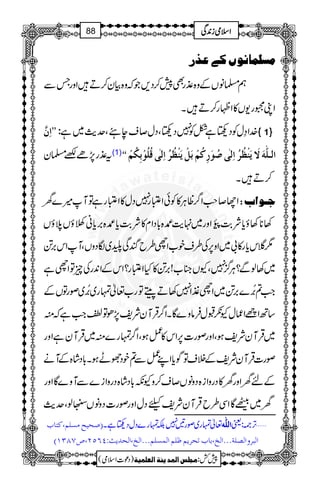 88
اسلامی زندگی
مسلمانوں کے عذر
ہم مسلمانوں کے وہ عذر بھی پیش کردیں کہ جو وہ بیان کرتے ہیں اور جس سے
اپنی مجبوریوں کا اظہار کرتے ہیں۔
{1} خدا دل کو دیکھتا ہے شکل کو نہیں دیکھتا، دل صاف چاہئے، حدیث میں ہے: ''اِنَّ
اللّٰہَ لَا یَنْظُرُ اِلٰی صُوَرِکُمْ بَلْ یَنْظُرُ اِلٰی قُلُوْبِکُمْ'' (1) یہ عذر پڑھے لکھے مسلمان
کرتے ہیں۔
جواب: اچھا صاحب اگر ظاہر کا کوئی اعتبار نہیں دل کا اعتبار ہے تو آپ میرے گھر
کھانا کھاؤ یا شربت پیؤ اور میں نہایت عمدہ بادام کا شربت یا عمدہ بریانی کھلاؤں پلاؤں
مگر گلاس یا رکابی میں اوپر کی طرف خوب اچھی طرح گندگی پلیدی لگادوں، آپ اس برتن
میں کھالو گے؟ ہرگز نہیں، کیوں، جناب! برتن کا کیا اعتبار؟ اس کے اندر کی چیز تو اچھی ہے
جب تم بُرے برتن میں اچھی غذا نہیں کھاتے پیتے تو رب تعالیٰ تمہاری بُری صورتوں کے
ساتھ اچھے اعمال کیونکر قبول فرمادے گا۔ اگر قرآن شریف پڑھو تو لطف جب ہے کہ منہ
میں قرآن شریف ہو، اور صورت پر اس کا عمل ہو، اگر تمہارے منہ میں قرآن ہے اور
صورت قرآن شریف کے خلاف تو گویا اپنے عمل سے تم خود جھوٹے ہو۔ بادشاہ کے آنے
کے لئے گھر اور گھر کا دروازہ دونوں صاف کرو کیونکہ بادشاہ دروازے سے آوے گا اور
گھر میں بیٹھے گا اسی طرح قرآن شریف کیلئے دل اور صورت دونوں سنبھالو، حدیث
1 ......ترجمہ: یعنی اللہ تعالیٰ تمہاری صورتیں نہیں بلکہ تمہارے دل دیکھتا ہے۔ (صحیح مسلم، کتاب
البروالصلۃ...الخ، باب تحریم ظلم المسلم...الخ، الحدیث: ۲۵۶۴، ص ۱۳۸۷)
پیش کش: مجلس المدینۃ العلمیۃ (دعوتِ اسلامی)